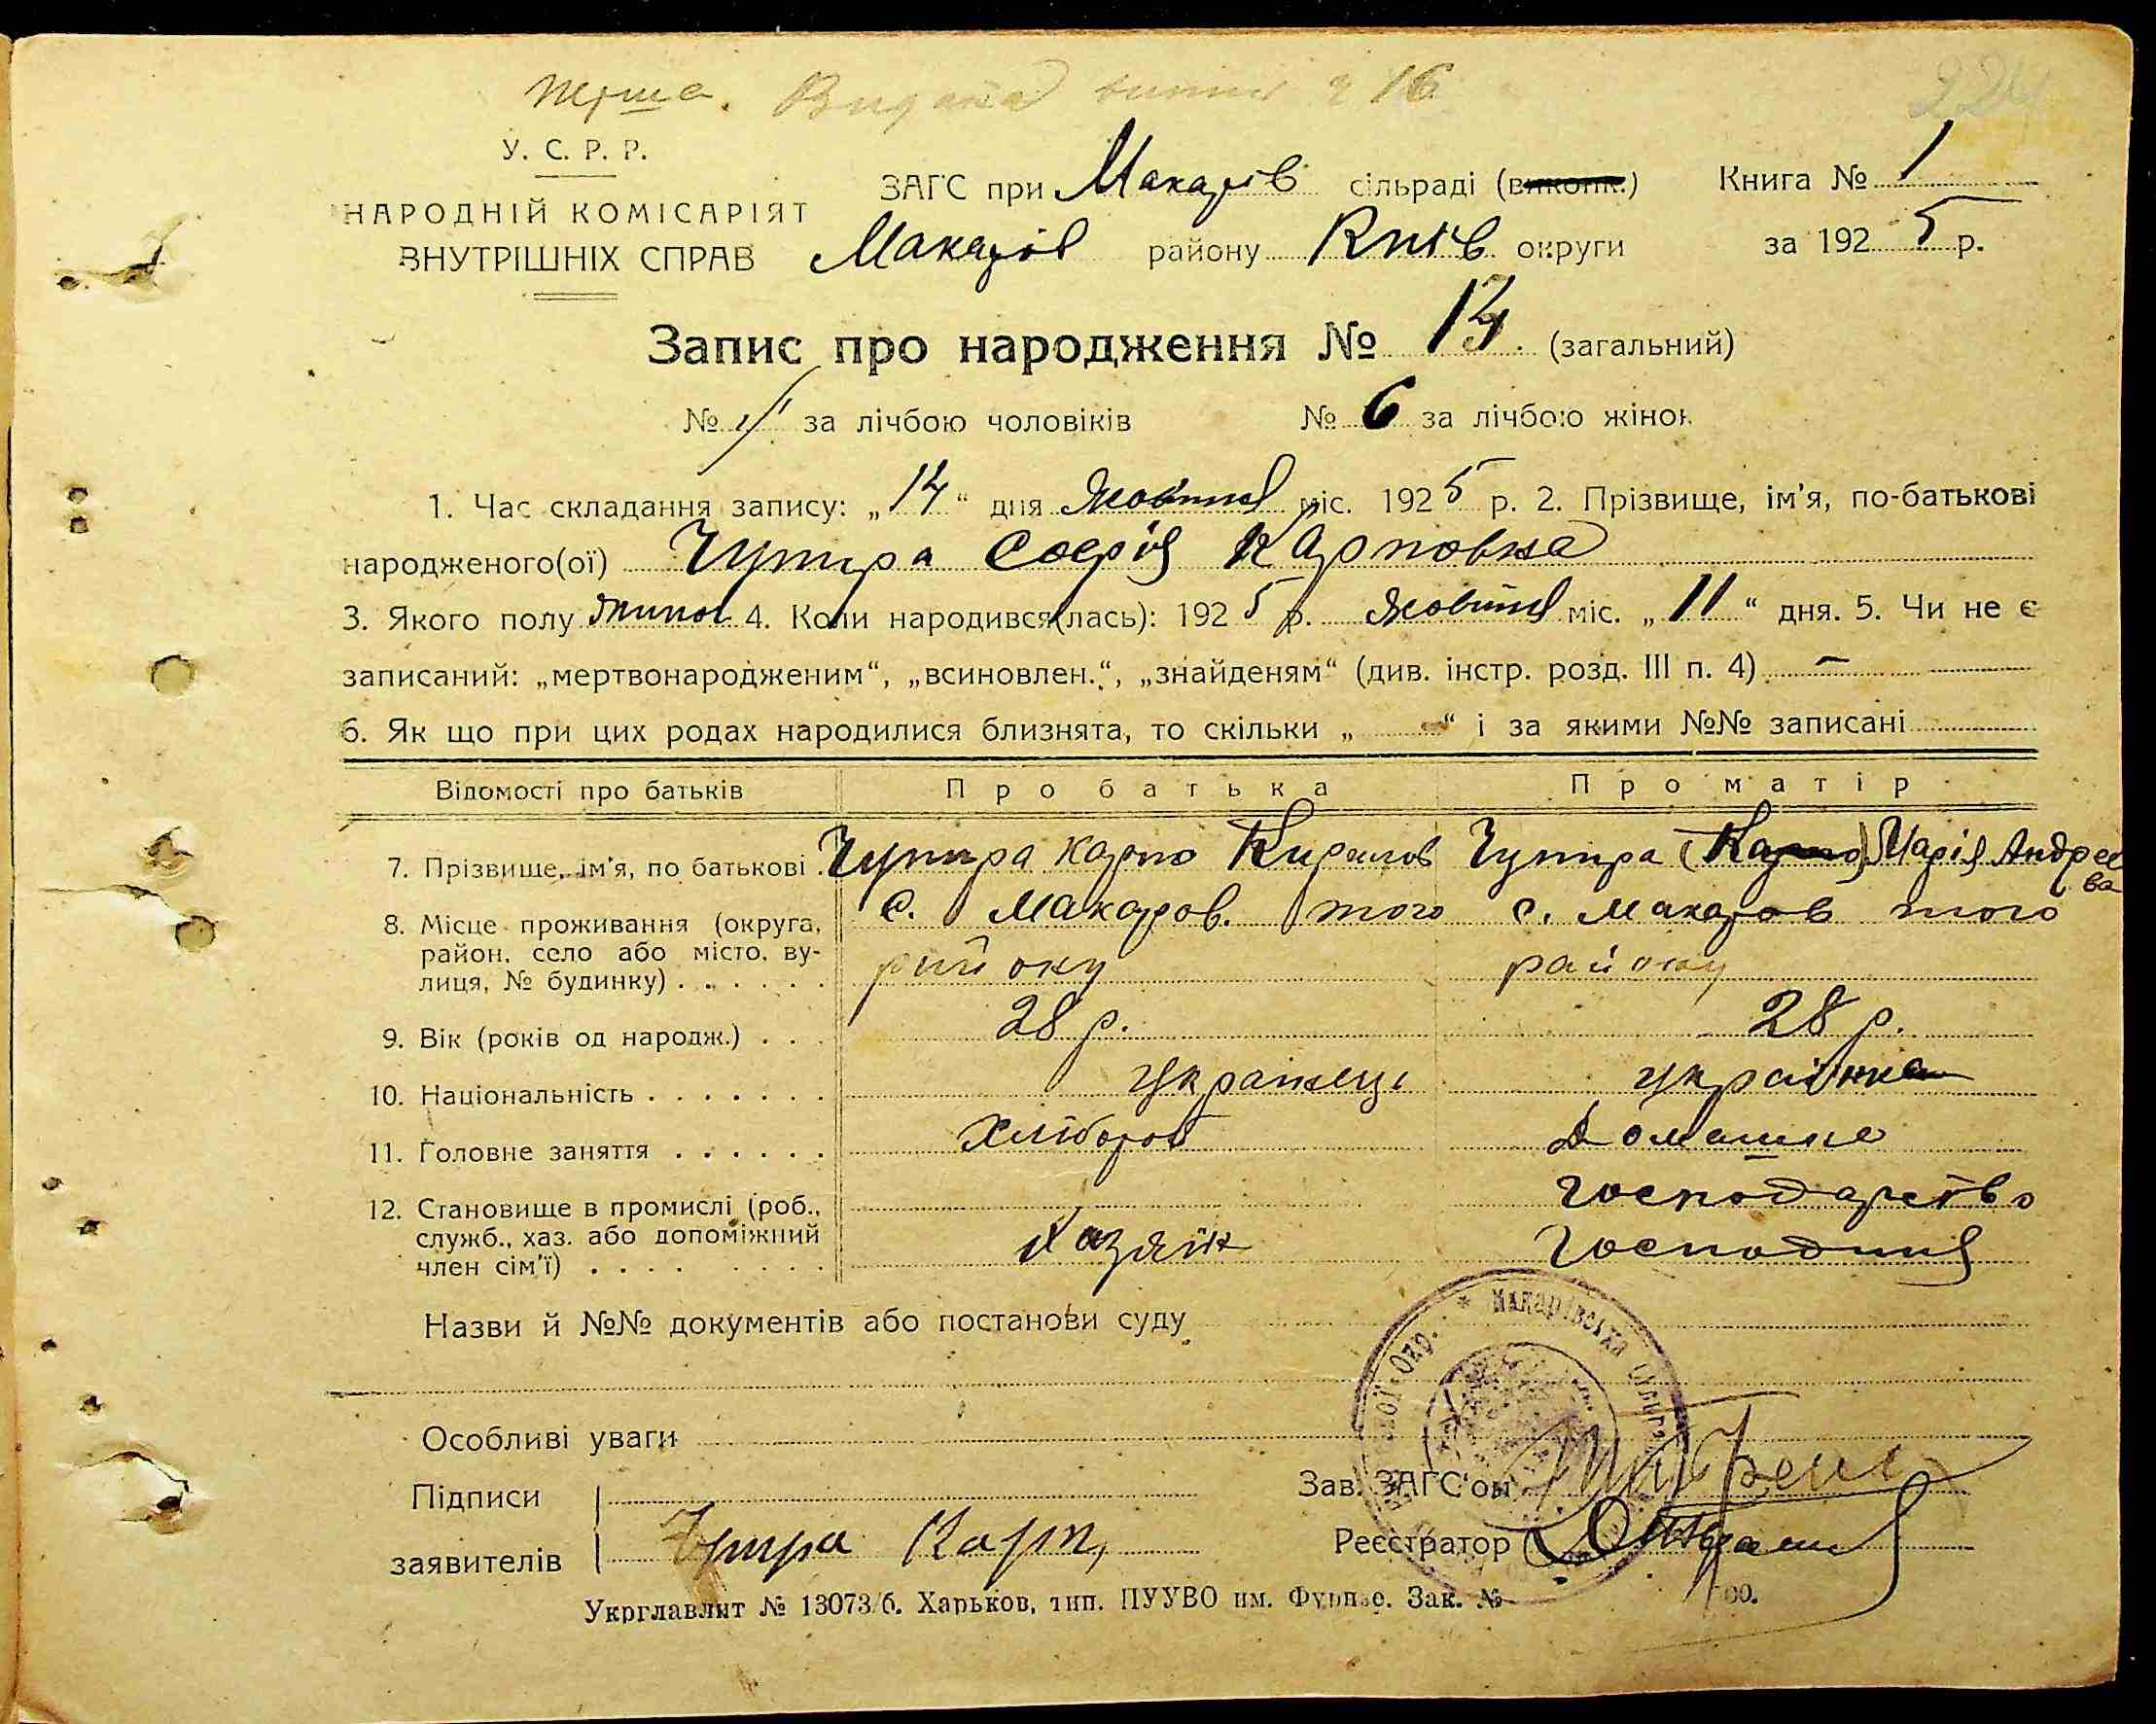 У. С. Р. Р.
НАРОДНІЙ КОМІСАРІЯТ
ВНУТРІШНІХ СПРАВ
ЗАГС при Макарів сільраді (виконк.) Книга № 1
Макарів району Київ округи за 1925 р.
Запис про народження № 13. (загальний)
№ за лічбою чоловіків № 6 за лічбою жінок
1. Час складання запису: „14“ дня Жовтня міс. 1925 р. 2. Прізвище, ім'я, по-батькові
народженого(ої) Чупира Софія Карповна
3. Якого полу жиноч 4. Коли народився(лась): 1925 р. Жовтня міс. „11“ дня. 5. Чи не є
записаний: „мертвонародженим“, „всиновлен.“, „знайденям“ (див. інстр. розд. III п. 4) –
6. Як що при цих родах народилися близнята, то скільки „ “ і за якими №№ записані
Відомості про батьків Про батька Про матір
7. Прізвище, ім'я, по батькові . Чупира Карпо Кирилов Чупира (Карпо) Марія Андреева
8. Місце проживання (округа, с. Макаров. того с. Макаров того
район, село або місто, ву- району району
лиця, № будинку) . . . . . .
9. Вік (років од народж.) . . . 28 р. 28 р.
10. Національність . . . . . . . українець українка
11. Головне заняття . . . . . . Хлібороб Домашнє
господарство
12. Становище в промислі (роб., Хазяїн Господиня
служб., хаз. або допоміжний
член сім'ї) . . . . . . . .
Назви й №№ документів або постанови суду
Особливі уваги
Підписи
заявителів Чупира Карп,
Зав. ЗАГС'ом
Реєстратор
Укрглавлит № 13073/б. Харьков, тип. ПУУВО им. Фрунзе. Зак. №